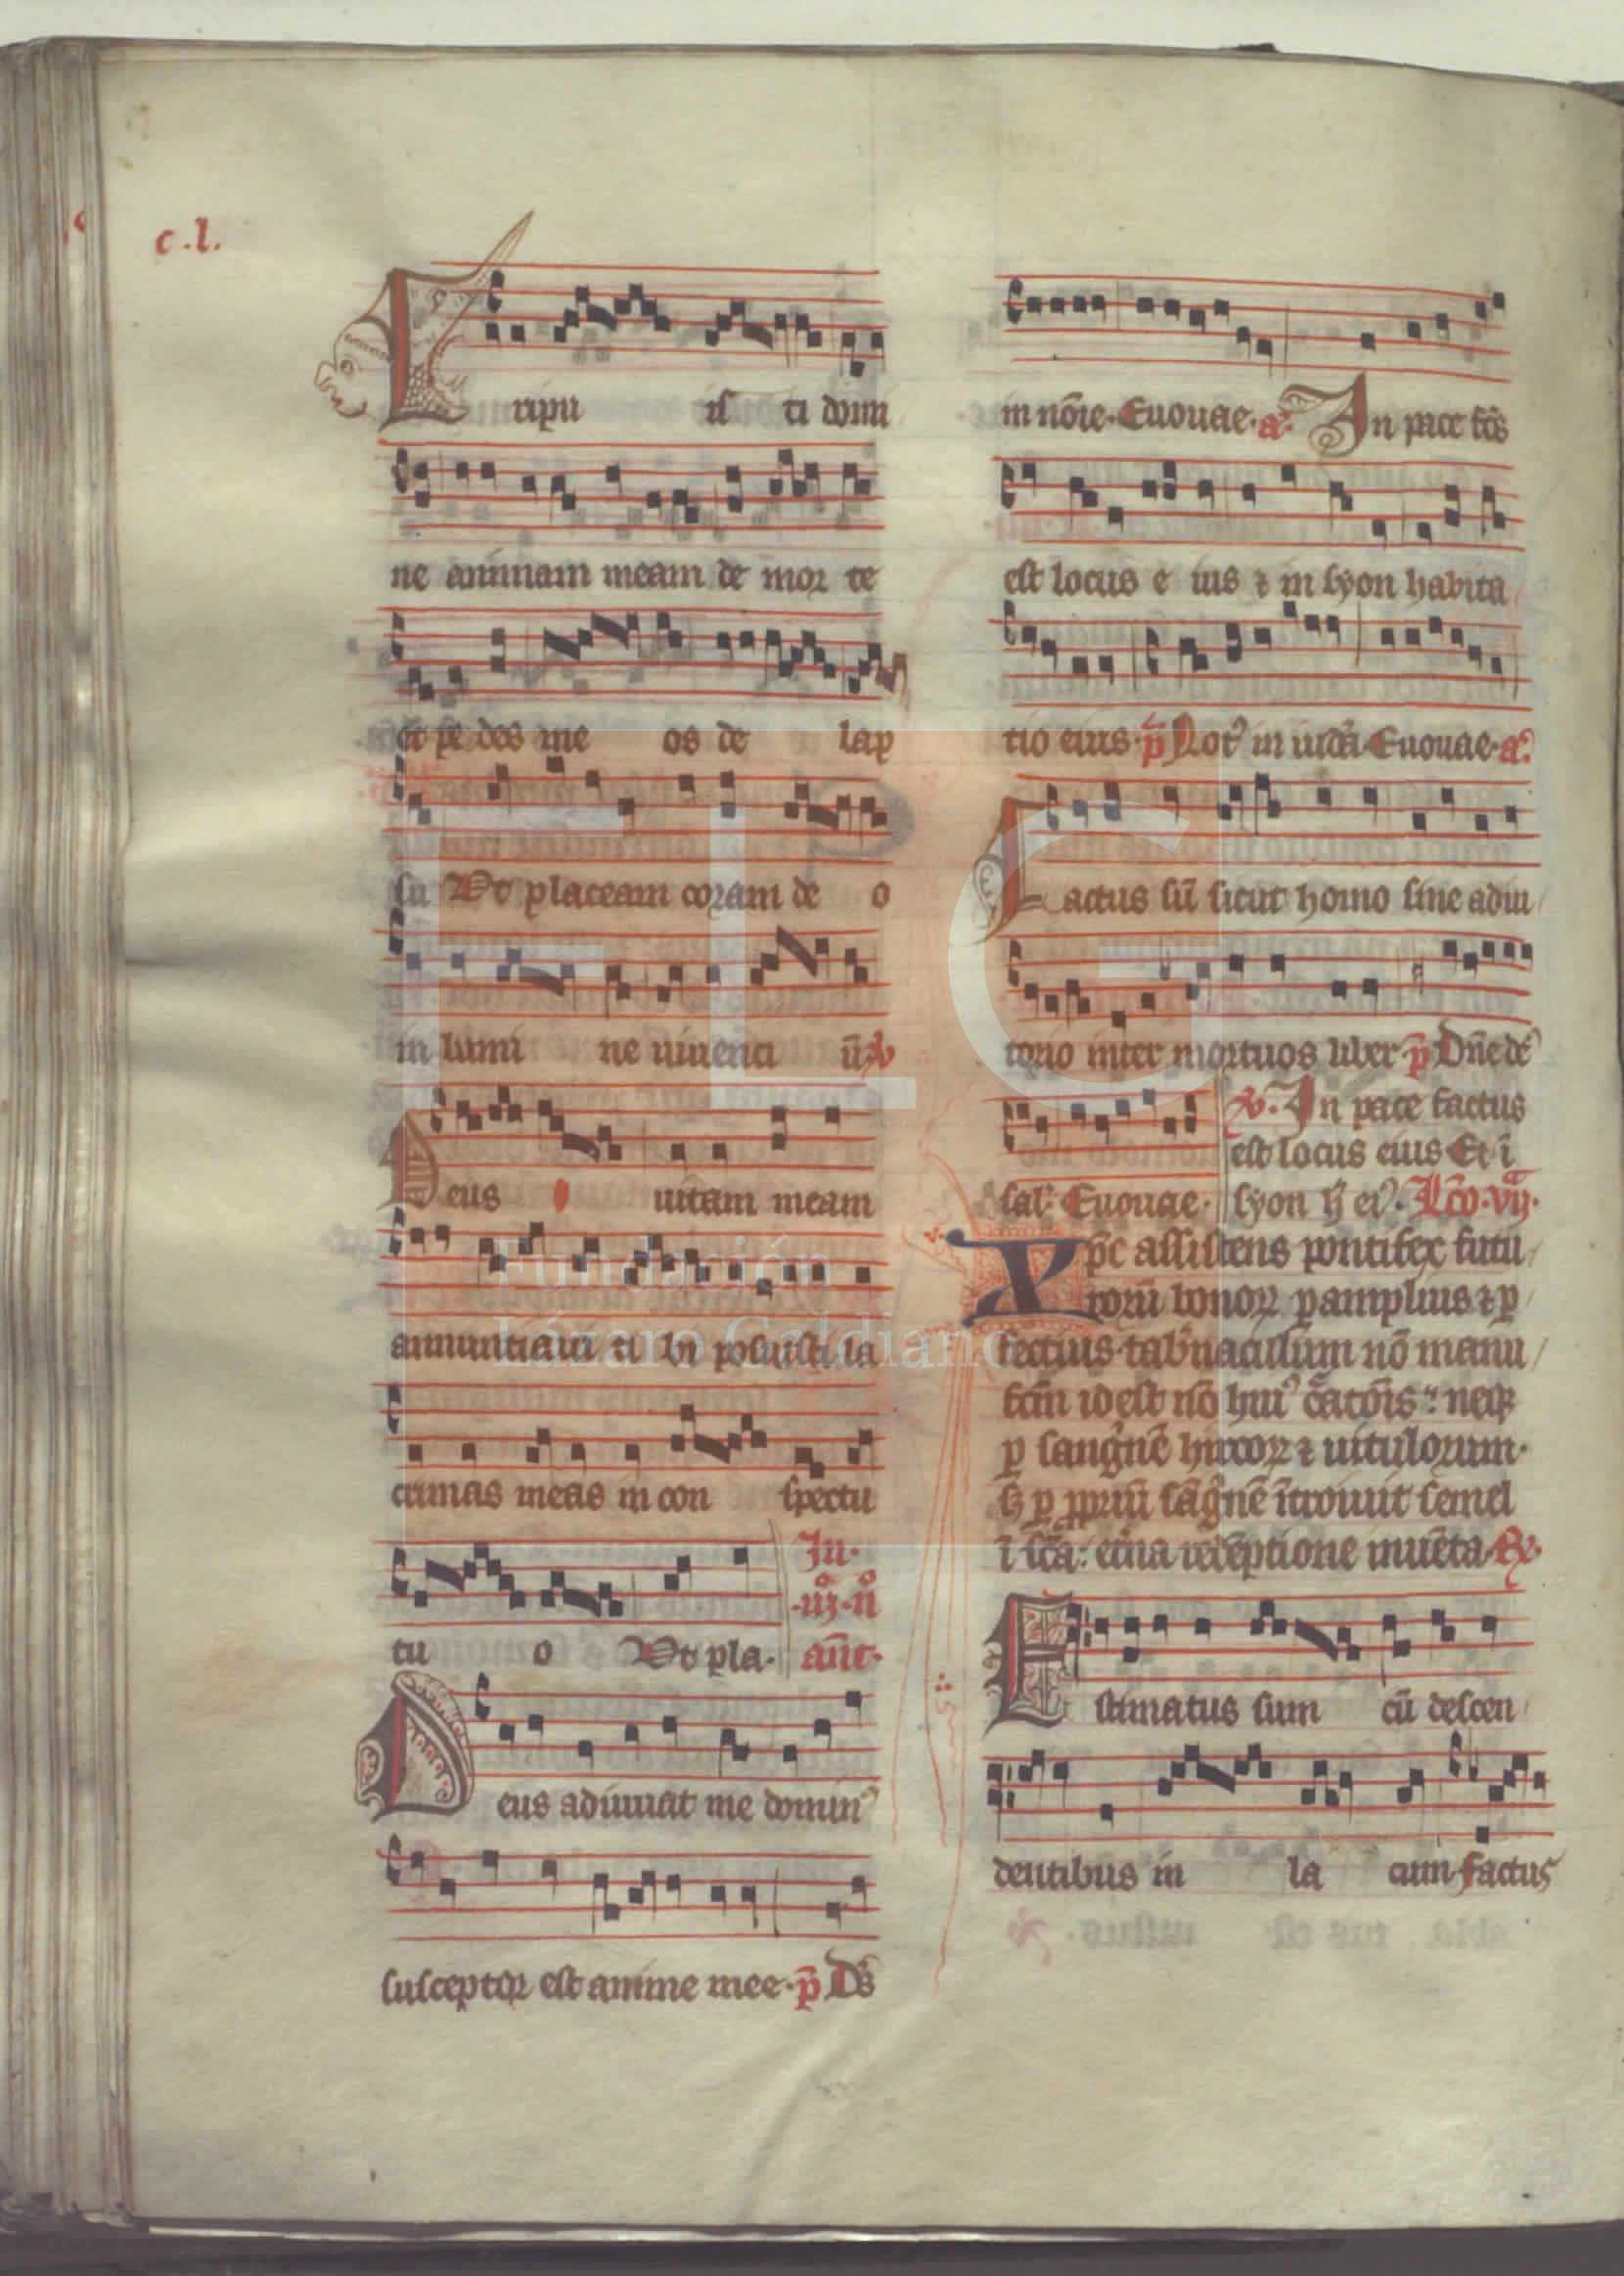 c.l.
Eripu is ti domi
ne animam meam de mor te
et pe des me os de lap
su Ut placeam coram de o
in lumi ne uiuenti ū ℣
Deus uitam meam
annuntiaui ti bi posuisti la
crimas meas in con spectu
tu o Ut pla.
In.
.iij.º n̄º
ant̄.
Deus adiuuat me domin⁹
susceptor est anime mee. p̄ Ds̄
in nōie. Euouae. a. In pace fc̄s
est locus e ius ⁊ in syon habita
tio eius. p̄ Not⁹ in iudā Euouae. a.
Factus sū sicut homo sine adiu
torio inter mortuos liber. p̄ Dn̄e de⁹
sal. Euouae.
℣. In pace factus
est locus eius Et ī
syon ħ ei⁹. Lc̄o. vij.
Xp̄c assistens pontifex futu
rorū bonoꝝ ꝑ amplius ⁊ ꝑ
fectius tab̄naculum nō manu
fc̄m id est nō hui⁹ c̄atōis: neqꝫ
ꝑ sangⁱnē hircoꝝ ⁊ uitulorum.
sꝫ ꝑ ꝓpriū sāgⁱnē ītroiuit semel
ī sc̄a: et̄na redēptione inuēta. ℞.
Estimatus sum cū descen
dentibus in la cum factus
FLG
Fundación
Lázaro Galdiano